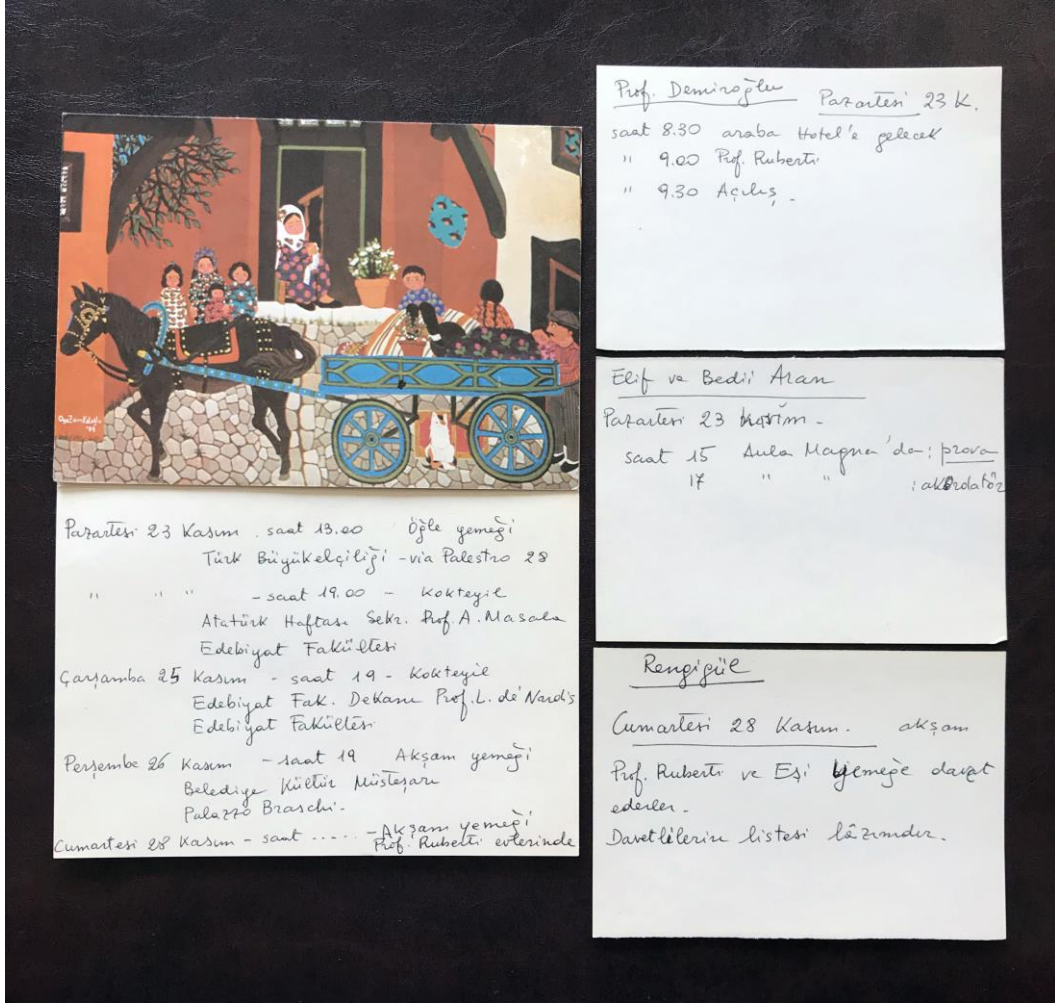 Pazartesi 23 Kasım . saat 13.00 Öğle yemeği
Türk Büyükelçiliği - via Palestro 28
" " " - saat 19.00 - Kokteyil
Atatürk Haftası Sekr. Prof. A. Masala
Edebiyat Fakültesi
Çarşamba 25 Kasım - saat 19 - Kokteyil
Edebiyat Fak. Dekanı Prof. L. de Nardis
Edebiyat Fakültesi
Perşembe 26 Kasım - saat 19 Akşam yemeği
Belediye Kültür Müsteşarı
Palazzo Braschi.
Cumartesi 28 Kasım - saat ..... - Akşam yemeği
Prof. Ruberti evlerinde
Prof. Demiroğlu Pazartesi 23 K.
saat 8.30 araba Hotel'e gelecek
" 9.00 Prof. Ruberti
" 9.30 Açılış.
Elif ve Bedii Aran
Pazartesi 23 Kasım.
saat 15 Aula Magna'da : prova
17 " " : akordatör
Rengigül
Cumartesi 28 Kasım. akşam
Prof. Ruberti ve Eşi yemeğe davet
ederler.
Davetlilerin listesi lâzımdır.